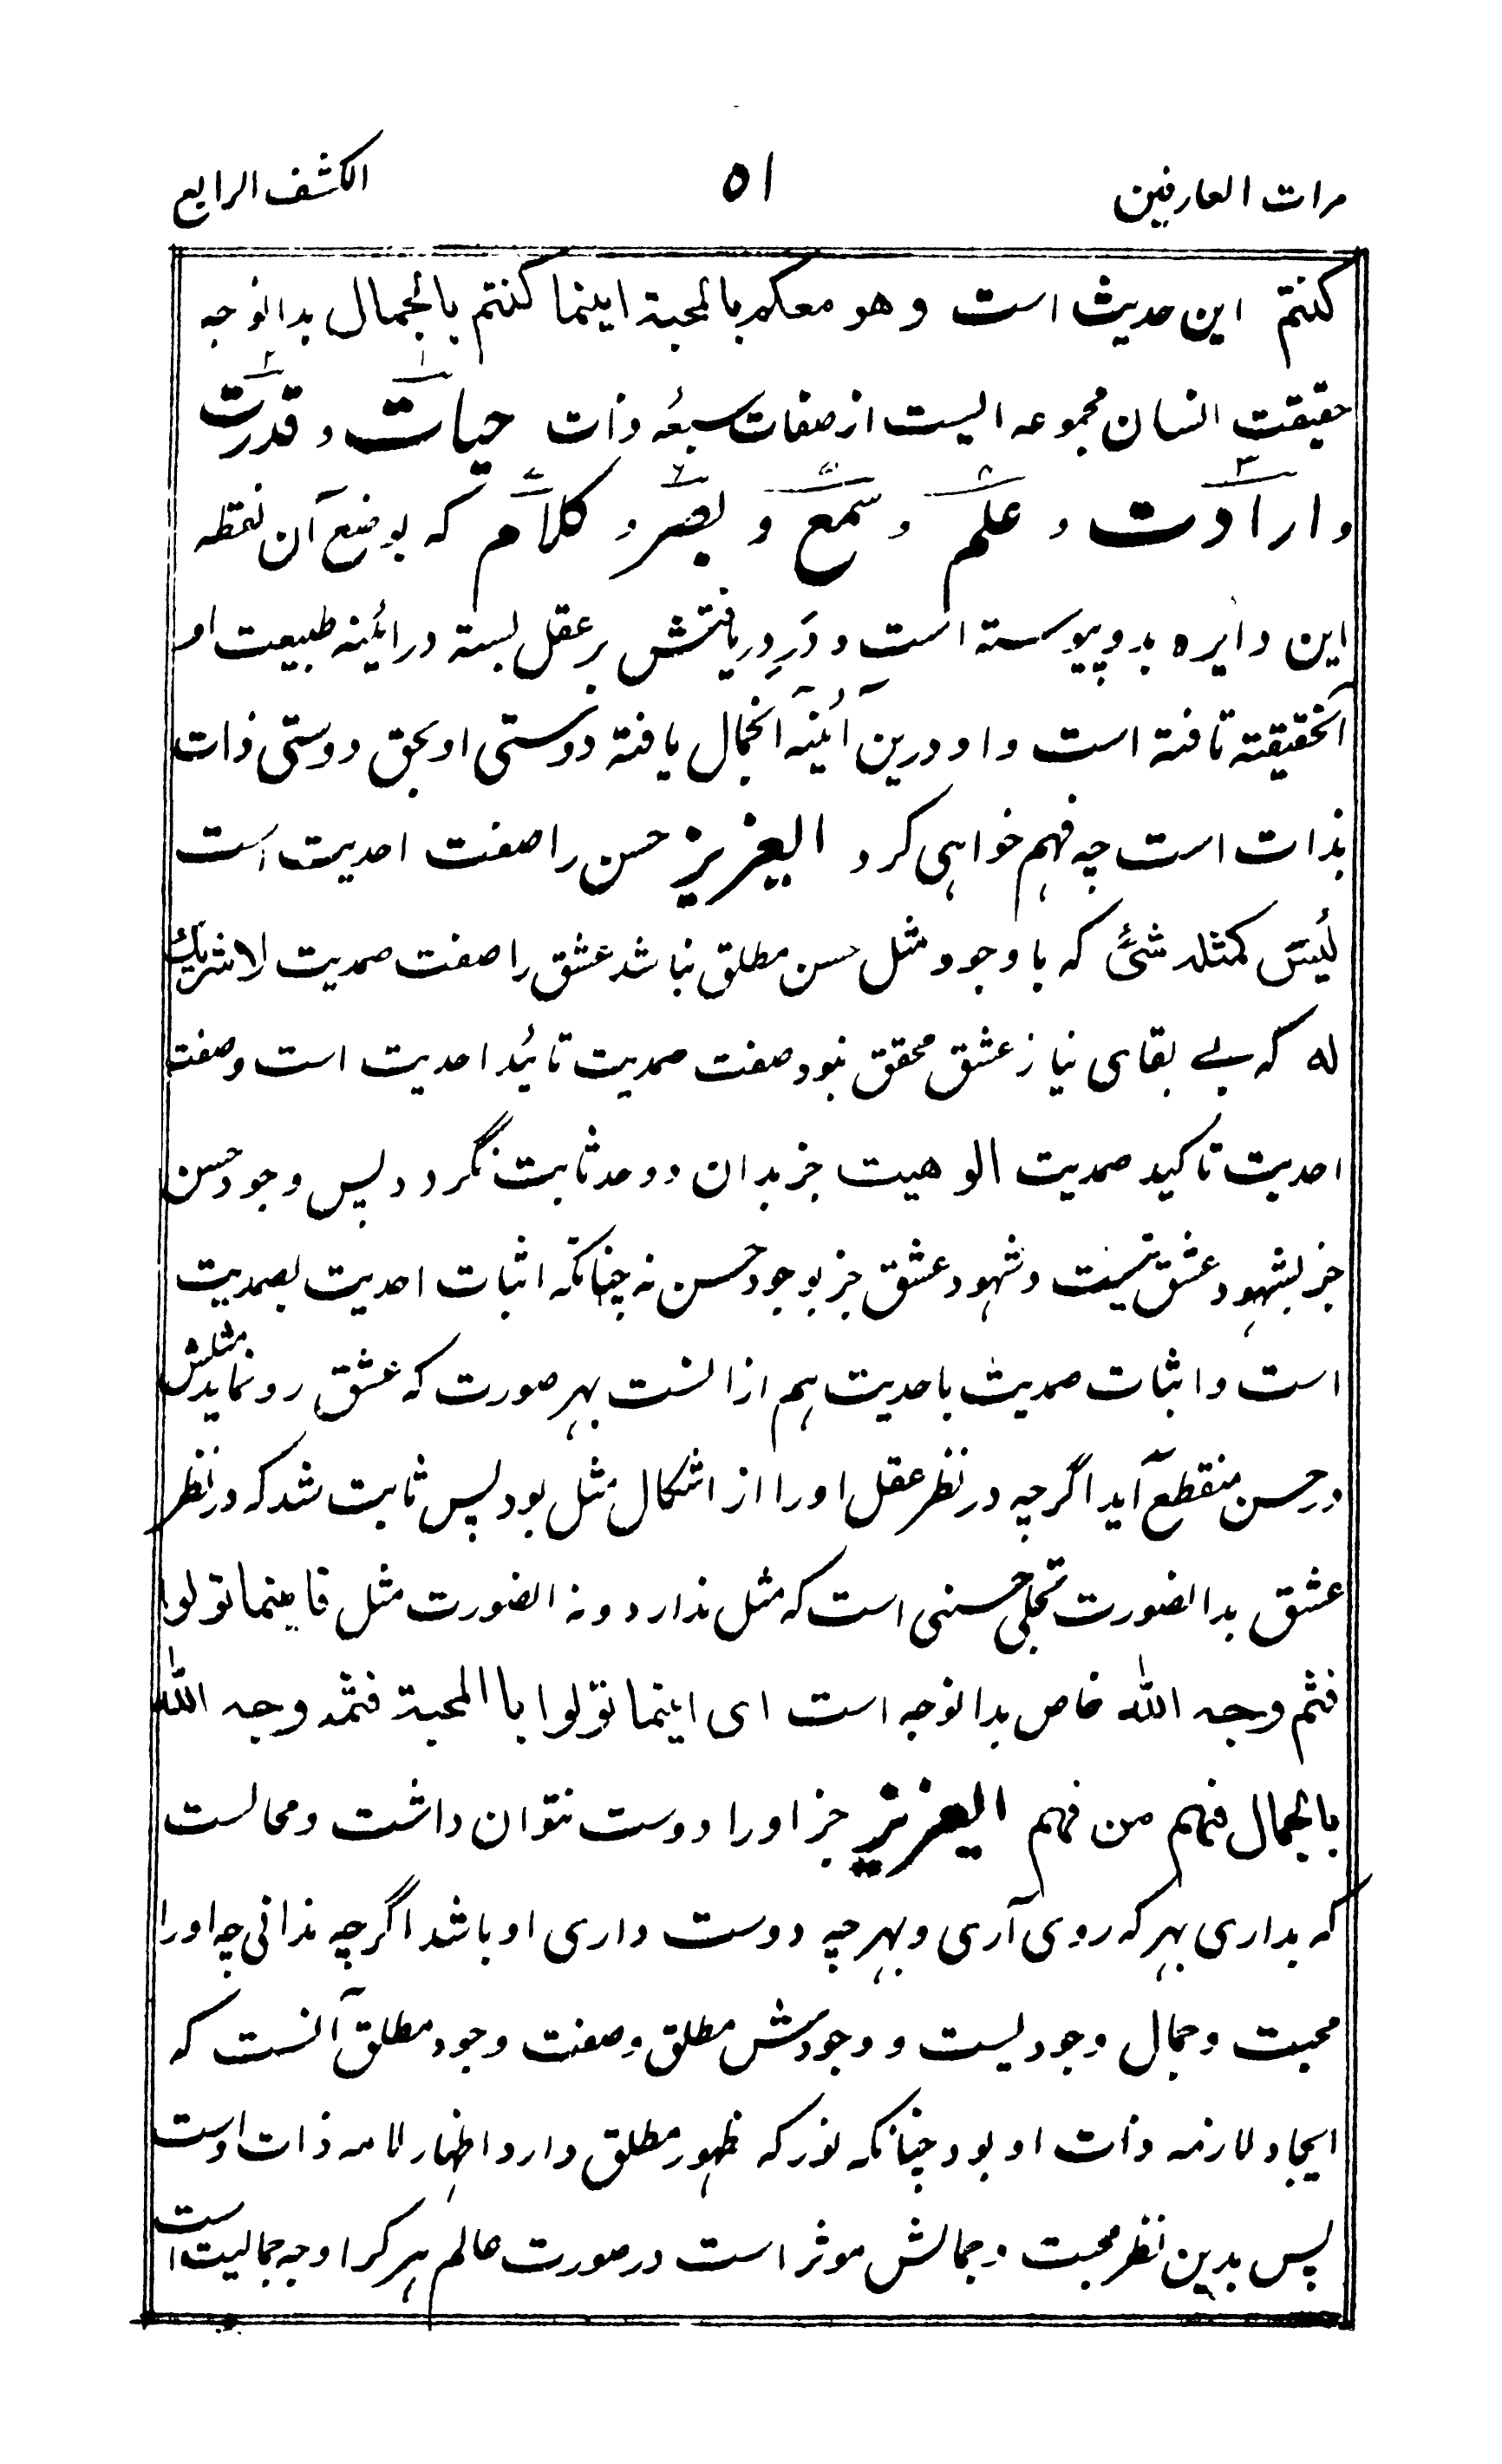 مرات العارفین ۵۱ الکشف الرابع
کنتم این حدیث است وهو معکم بالمحبة اینما کنتم بالجمال بدانوجه
حقیقت انسان مجموعه ایست از صفات سبعۂ ذات حیات و قدرت
و ارادت و علم و سمع و بصر و کلام که بوضع آن نقطه
این دایره بدو پیوسته است و در دریافتش بر عقل بسته در ائینه طبیعت او
آنحقیقته تافته است و او درین آئینه آنجمال یافته دوستی او بحق دوستی ذات
بذات است چه فهم خواهی کرد العزیز حسن را صفت احدیت است
لیس کمثله شئ که با وجود مثل حسن مطلق نباشد عشق را صفت صمدیت لاشریک
له که بے بقای نیاز عشق محقق نبود صفت صمدیت تائید احدیت است و صفت
احدیت تاکید صمدیت الوهیت جز بدان دو حد ثابت نگردد پس وجود حسن
جز بشهود عشق نیست و شهود عشق جز بوجود حسن نه چنانکه اثبات احدیت بصمدیت
است و اثبات صمدیت باحدیت هم ازانست بهر صورت که عشق رو نماید مثلش
در حسن منقطع آید اگرچه در نظر عقل او را از اشکال مثل بود پس ثابت شد که در نظر
عشق بدانصورت تجلی حسنی است که مثل ندارد و نه انصورت مثل فاینما تولوا
فثم وجه الله خاص بدانوجه است ای اینما تولوا باالمحبة فثمه وجه الله
بالجمال فهم من فهم العزیز جز او را دوست نتوان داشت و محالست
که بداری بهر که روی آری و بهر چه دوست داری او باشد اگرچه ندانی چه او را
محبت و جمال وجودیست و وجودش مطلق و صفت وجود مطلق آنست که
ایجاد لازمه ذات او بود چنانکه نور که ظهور مطلق دارد اظهار لامه ذات اوست
پس بدین نظر محبت و جمالش موثر است در صورت عالم هر کرا وجه جمالیت است